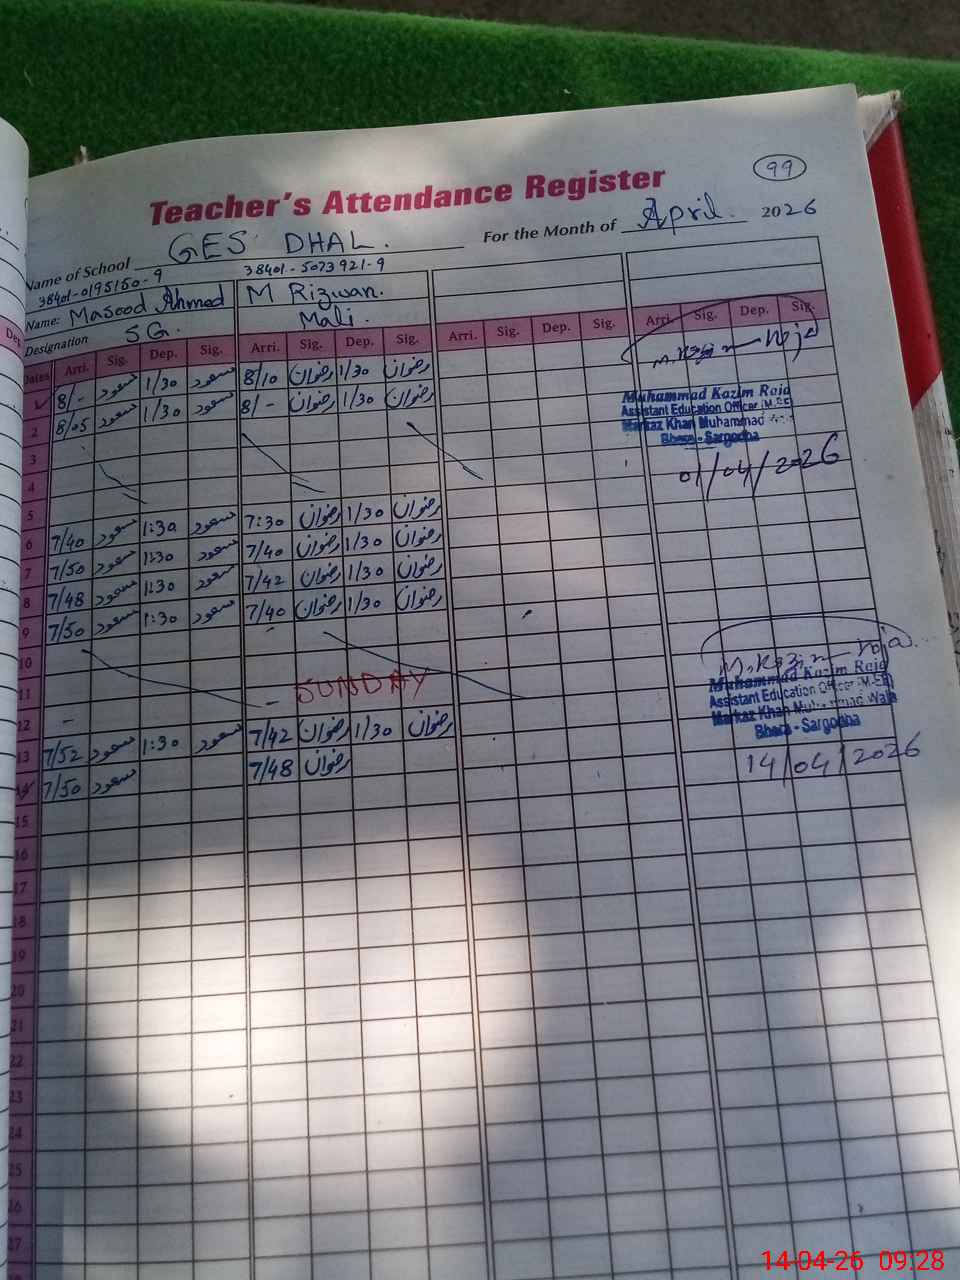 99
Teacher's Attendance Register
Name of School GES DHAL. For the Month of April. 2026
38401-0195150-9 38401-5073921-9
Name: Masood Ahmed M Rizwan.
Designation SG. Mali.
Dates Arri. Sig. Dep. Sig. Arri. Sig. Dep. Sig. Arri. Sig. Dep. Sig. Arri. Sig. Dep. Sig.
8/- مسعود 1/30 مسعود 8/10 رضوان 1/30 رضوان
2 8/05 مسعود 1/30 مسعود 8/- رضوان 1/30 رضوان
Muhammad Kazim Roja
Assistant Education Officer (M-EE)
Markaz Khan Muhammad
Bhera - Sargodha
01/04/2026
3
4
5
6 7/40 مسعود 1:30 مسعود 7:30 رضوان 1/30 رضوان
7 7/50 مسعود 1:30 مسعود 7/40 رضوان 1/30 رضوان
8 7/48 مسعود 1:30 مسعود 7/42 رضوان 1/30 رضوان
9 7/50 مسعود 1:30 مسعود 7/40 رضوان 1/30 رضوان
10
11 SUNDAY
12
M. Kazim Roja
Muhammad Kazim Roja
Assistant Education Officer (M-EE)
Markaz Khan Muhammad Wala
Bhera - Sargodha
14/04/2026
13 7/52 مسعود 1:30 مسعود 7/42 رضوان 1/30 رضوان
14 7/50 مسعود 7/48 رضوان
15
16
17
18
19
20
21
22
23
24
25
26
27
14-04-26 09:28